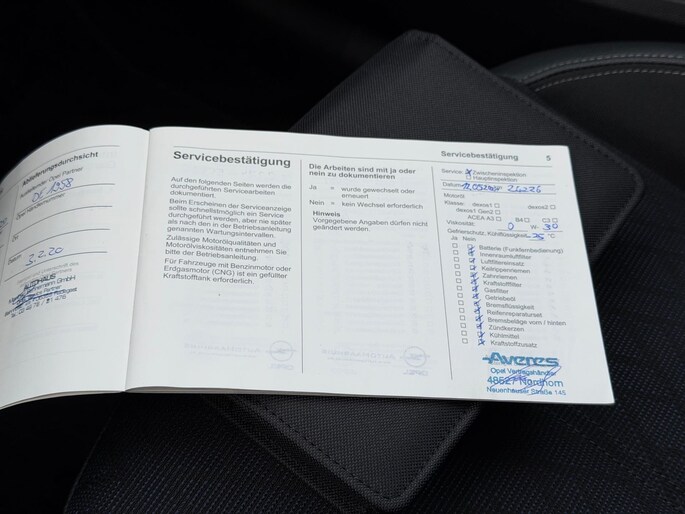 Ablieferungsdurchsicht
Ausliefernder Opel Partner
DE 1958
2.2.20
AUTOHAUS
Servicebestätigung
Auf den folgenden Seiten werden die
durchgeführten Servicearbeiten
dokumentiert.
Beim Erscheinen der Serviceanzeige
sollte schnellstmöglich ein Service
durchgeführt werden, aber nie später
als nach den in der Betriebsanleitung
genannten Wartungsintervallen.
Zulässige Motorölqualitäten und
Motorölviskositäten entnehmen Sie
bitte der Betriebsanleitung.
Für Fahrzeuge mit Benzinmotor oder
Erdgasmotor (CNG) ist ein gefüllter
Kraftstofftank erforderlich.
Die Arbeiten sind mit ja oder
nein zu dokumentieren
Ja = wurde gewechselt oder
erneuert
Nein = kein Wechsel erforderlich
Hinweis
Vorgegebene Angaben dürfen nicht
geändert werden.
Servicebestätigung 5
Service: Zwischeninspektion
Hauptinspektion
Datum 26226
Motoröl
Klasse: dexos1 dexos2
dexos1 Gen2
ACEA A3 B4 C3
Viskosität: 0 W- 30
Gefrierschutz, Kühlflüssigkeit -35 °C
Ja Nein
Batterie (Funkfernbedienung)
Innenraumluftfilter
Luftfiltereinsatz
Keilrippenriemen
Zahnriemen
Kraftstofffilter
Gasfilter
Getriebeöl
Bremsflüssigkeit
Reifenreparaturset
Bremsbeläge vorn / hinten
Zündkerzen
Kühlmittel
Kraftstoffzusatz
Averes
Opel Vertragshändler
48527 Nordhorn
Neuenhauser Straße 145